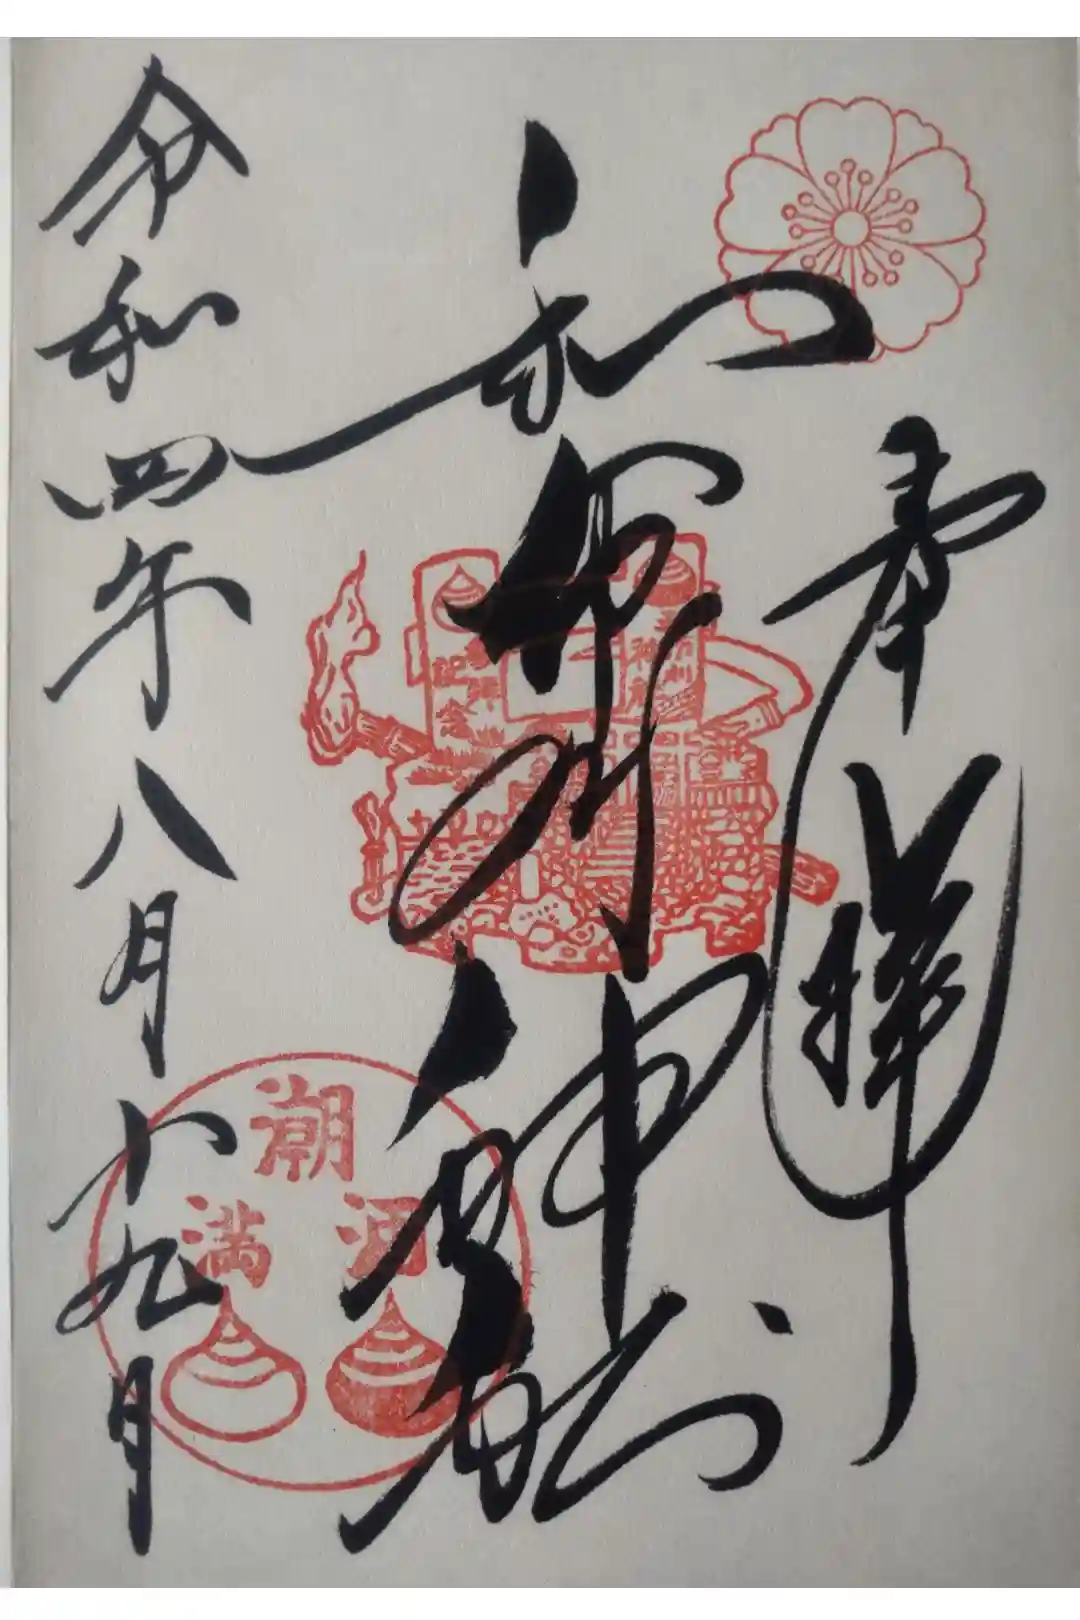 奉拝
和布刈神社
令和四年八月十九日
参拝
記念
潮
満